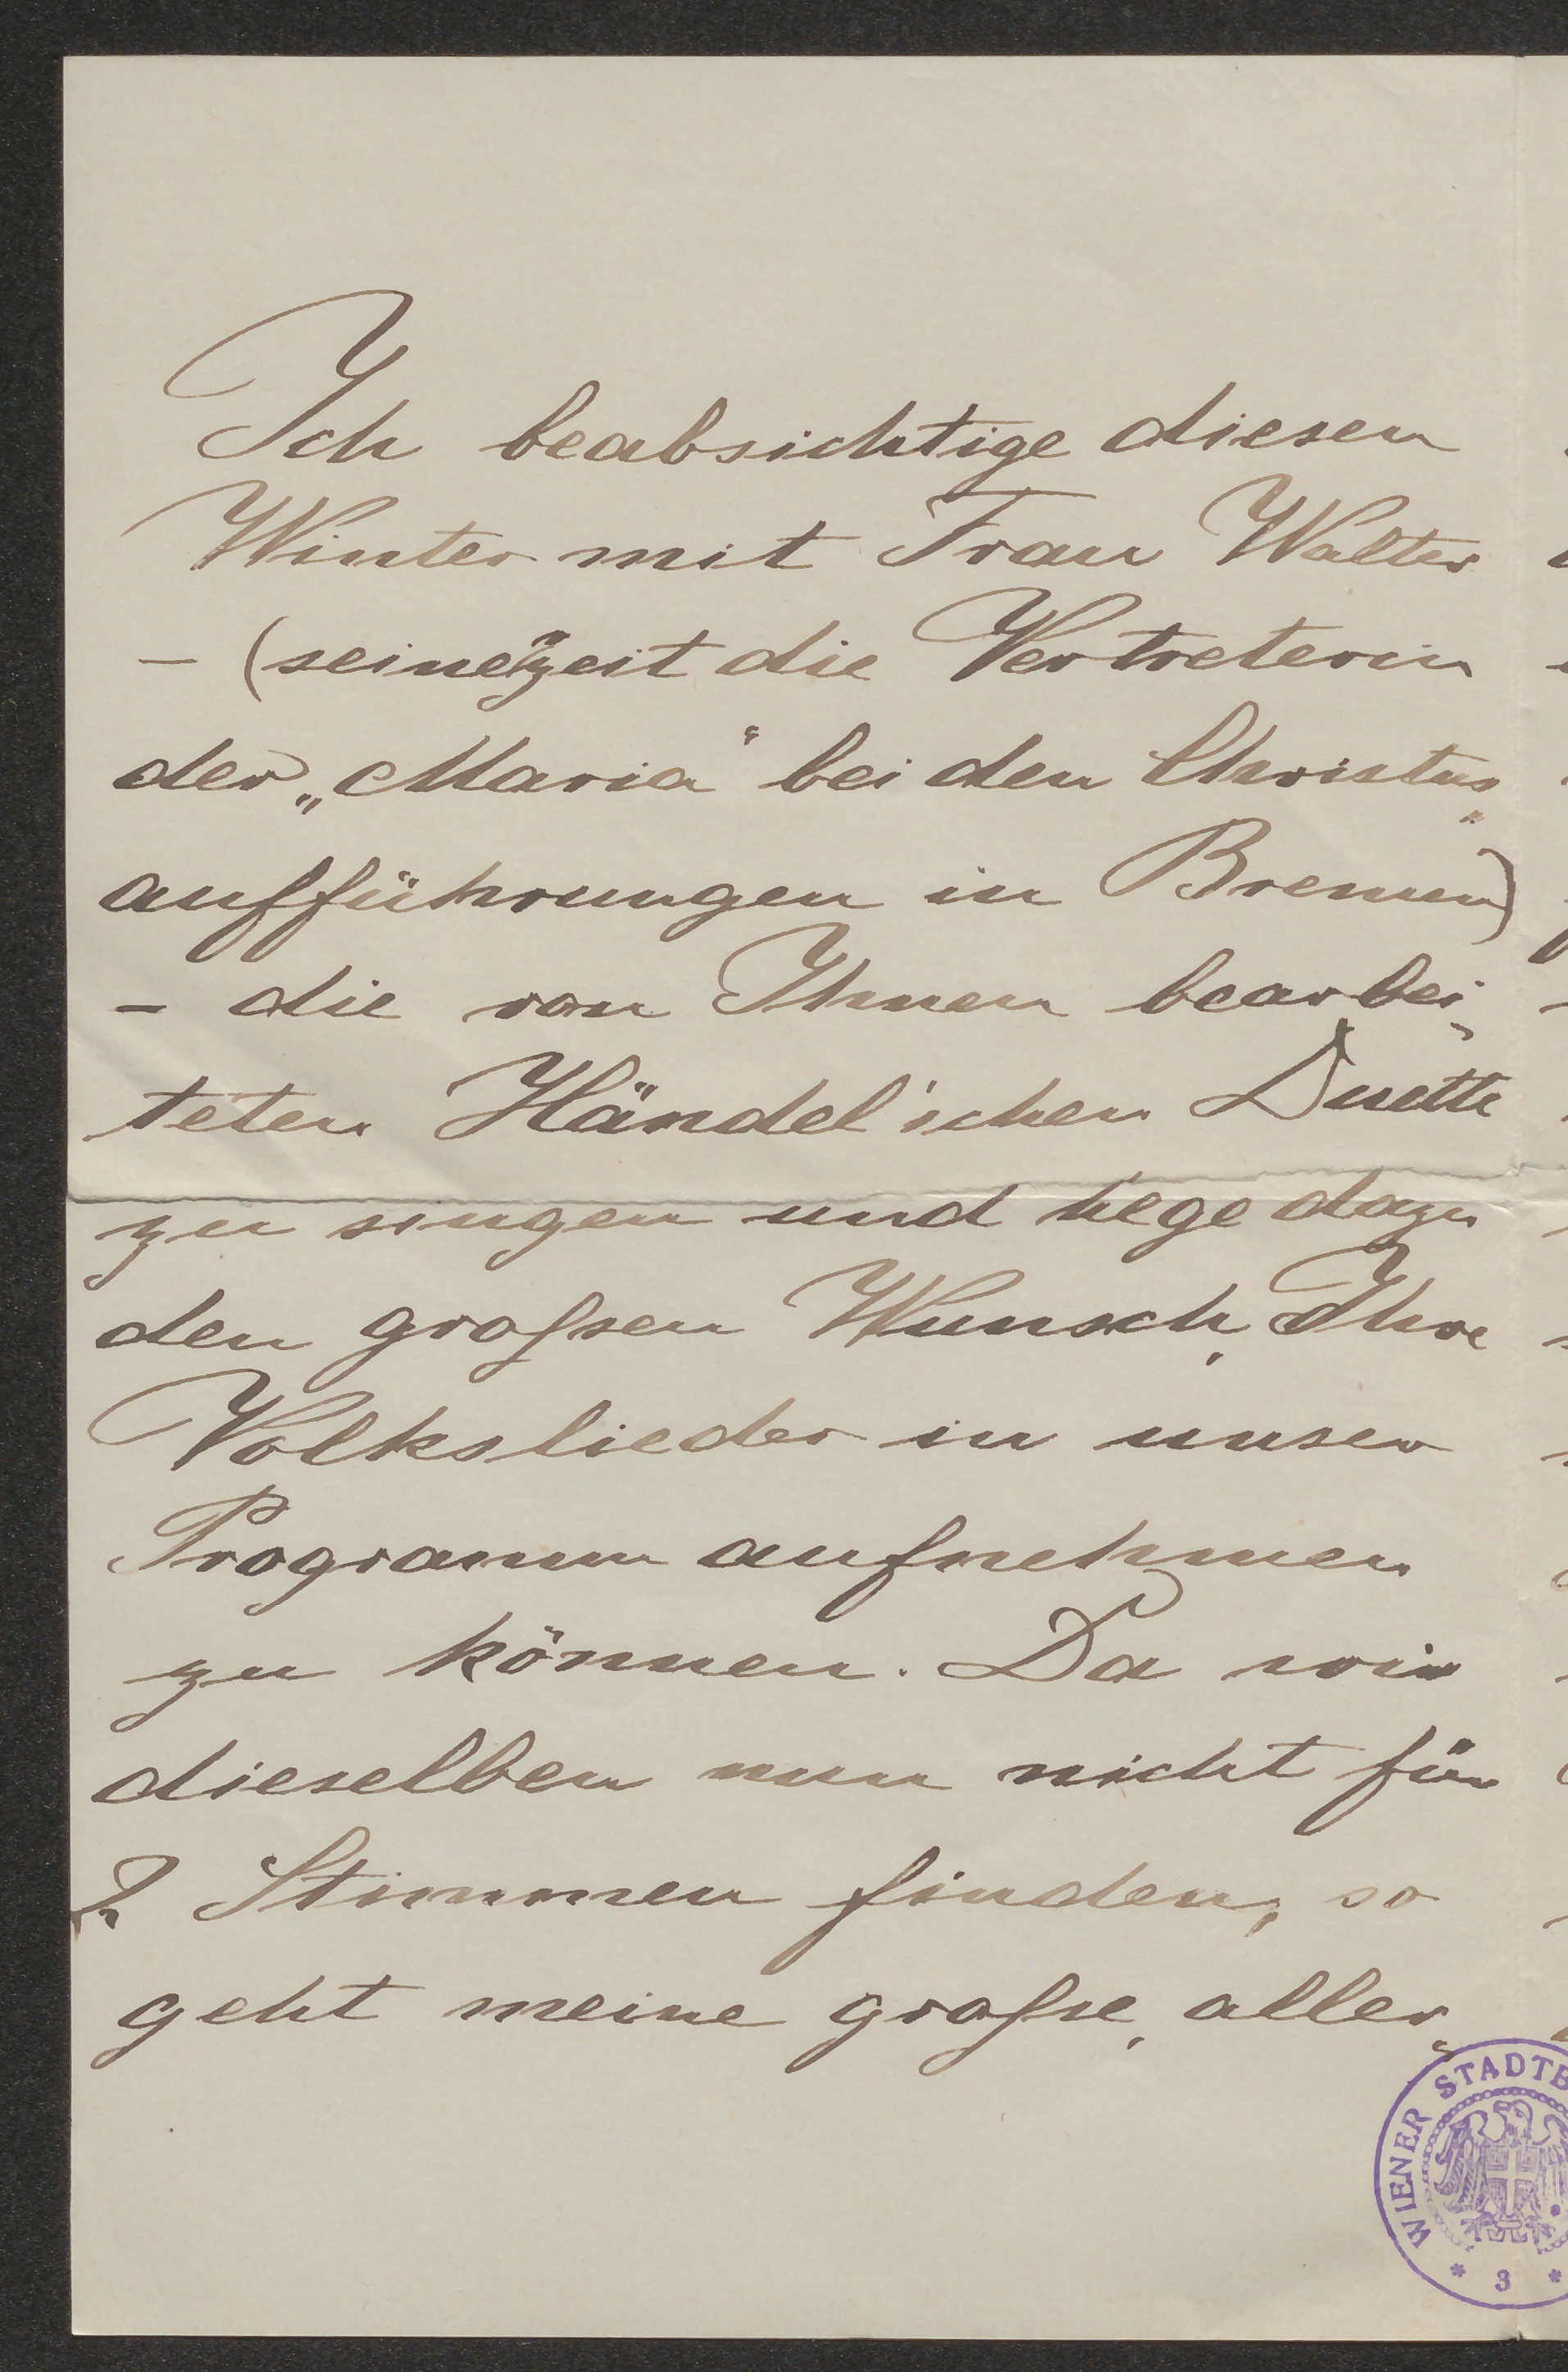 Ich beabsichtige diesen
Winter mit Frau Walter
– (seinerzeit die Vertreterin
der „Maria“ bei den Christus„
aufführungen in Bremen)
– die von Ihnen bearbei„
teten Händel'schen Duette
zu singen und hege dazu
den großen Wunsch, Ihre
Volkslieder in unser
Programm aufnehmen
zu können. Da wir
dieselben nun nicht für
2 Stimmen finden, so
geht meine große, aller„
WIENER STADTB
* 3 *